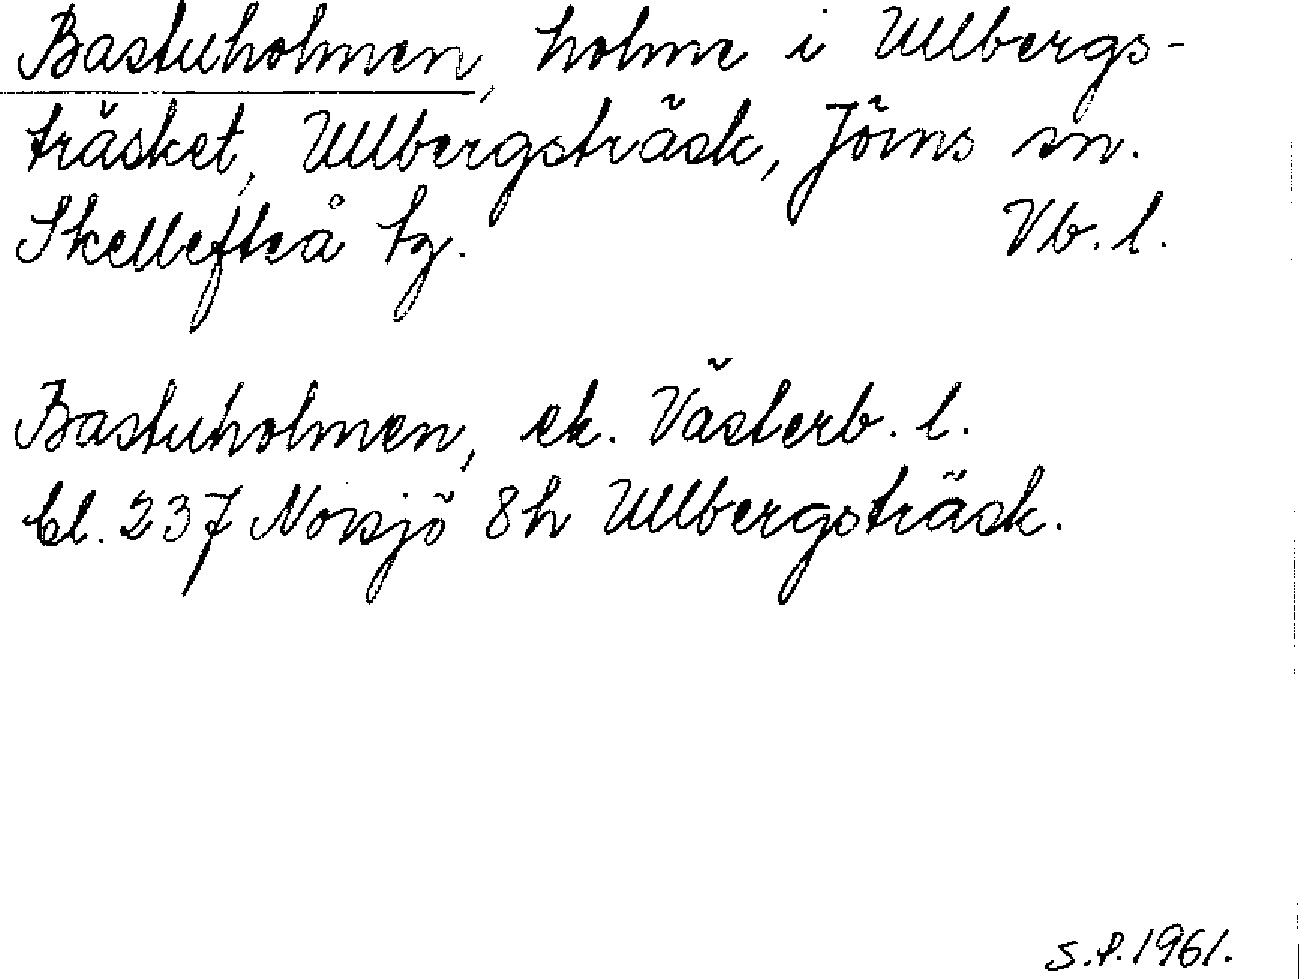 Bastuholmen, holme i Ullbergs-
träsket, Ullbergsträsk, Jörns sn.
Skellefteå tg. Vb. l.
Bastuholmen, ek. Västerb. l.
bl. 237 Norsjö 8h Ullbergsträsk.
S.P. 1961.